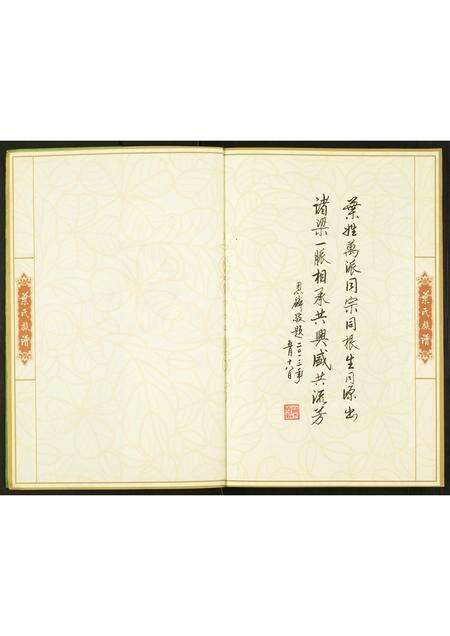 葉姓萬派同宗同根生同源出
諸梁一脈相承共興盛共流芳
敬題二〇一三年
月十八日
葉氏族谱
葉氏族谱